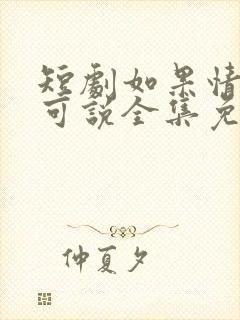 短劇如果情
可說全集免
仲夏夕